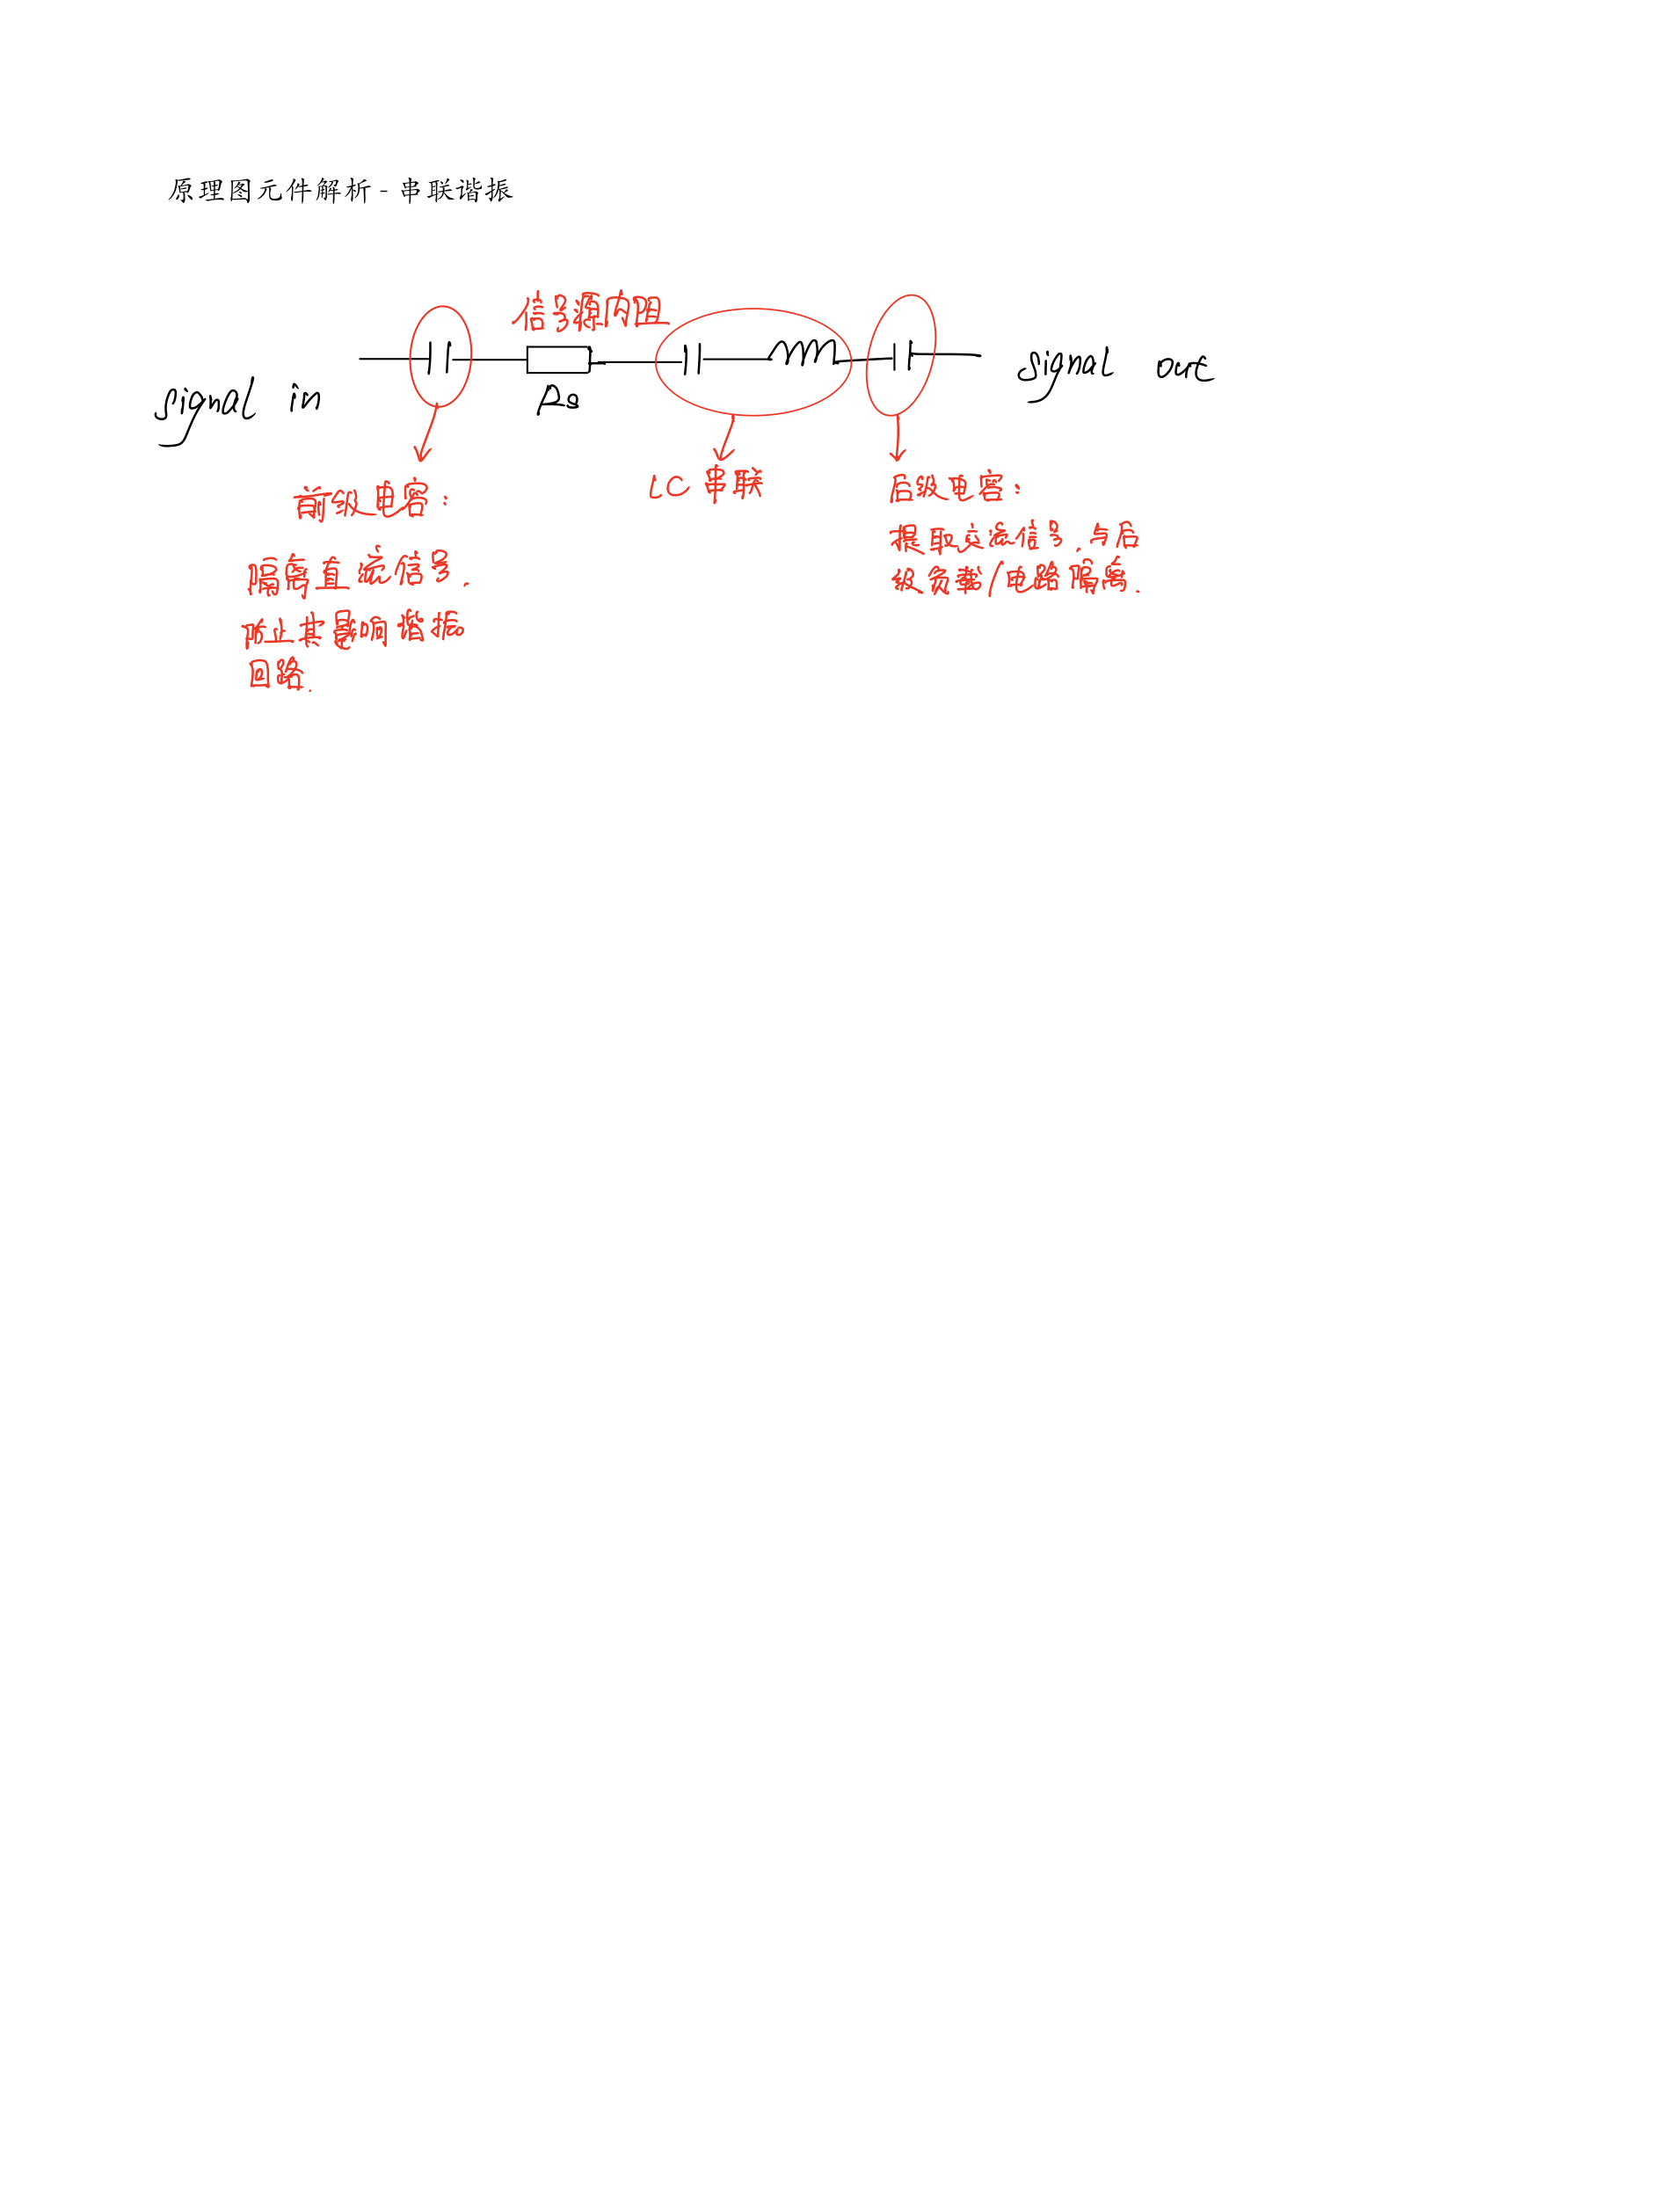 原理图元件解析 - 串联谐振
信号源内阻
signal in
Rs
signal out
前级电容：
隔离直流信号.
防止其影响谐振
回路.
LC 串联
后级电容：
提取交流信号,与后
级负载/电路隔离.